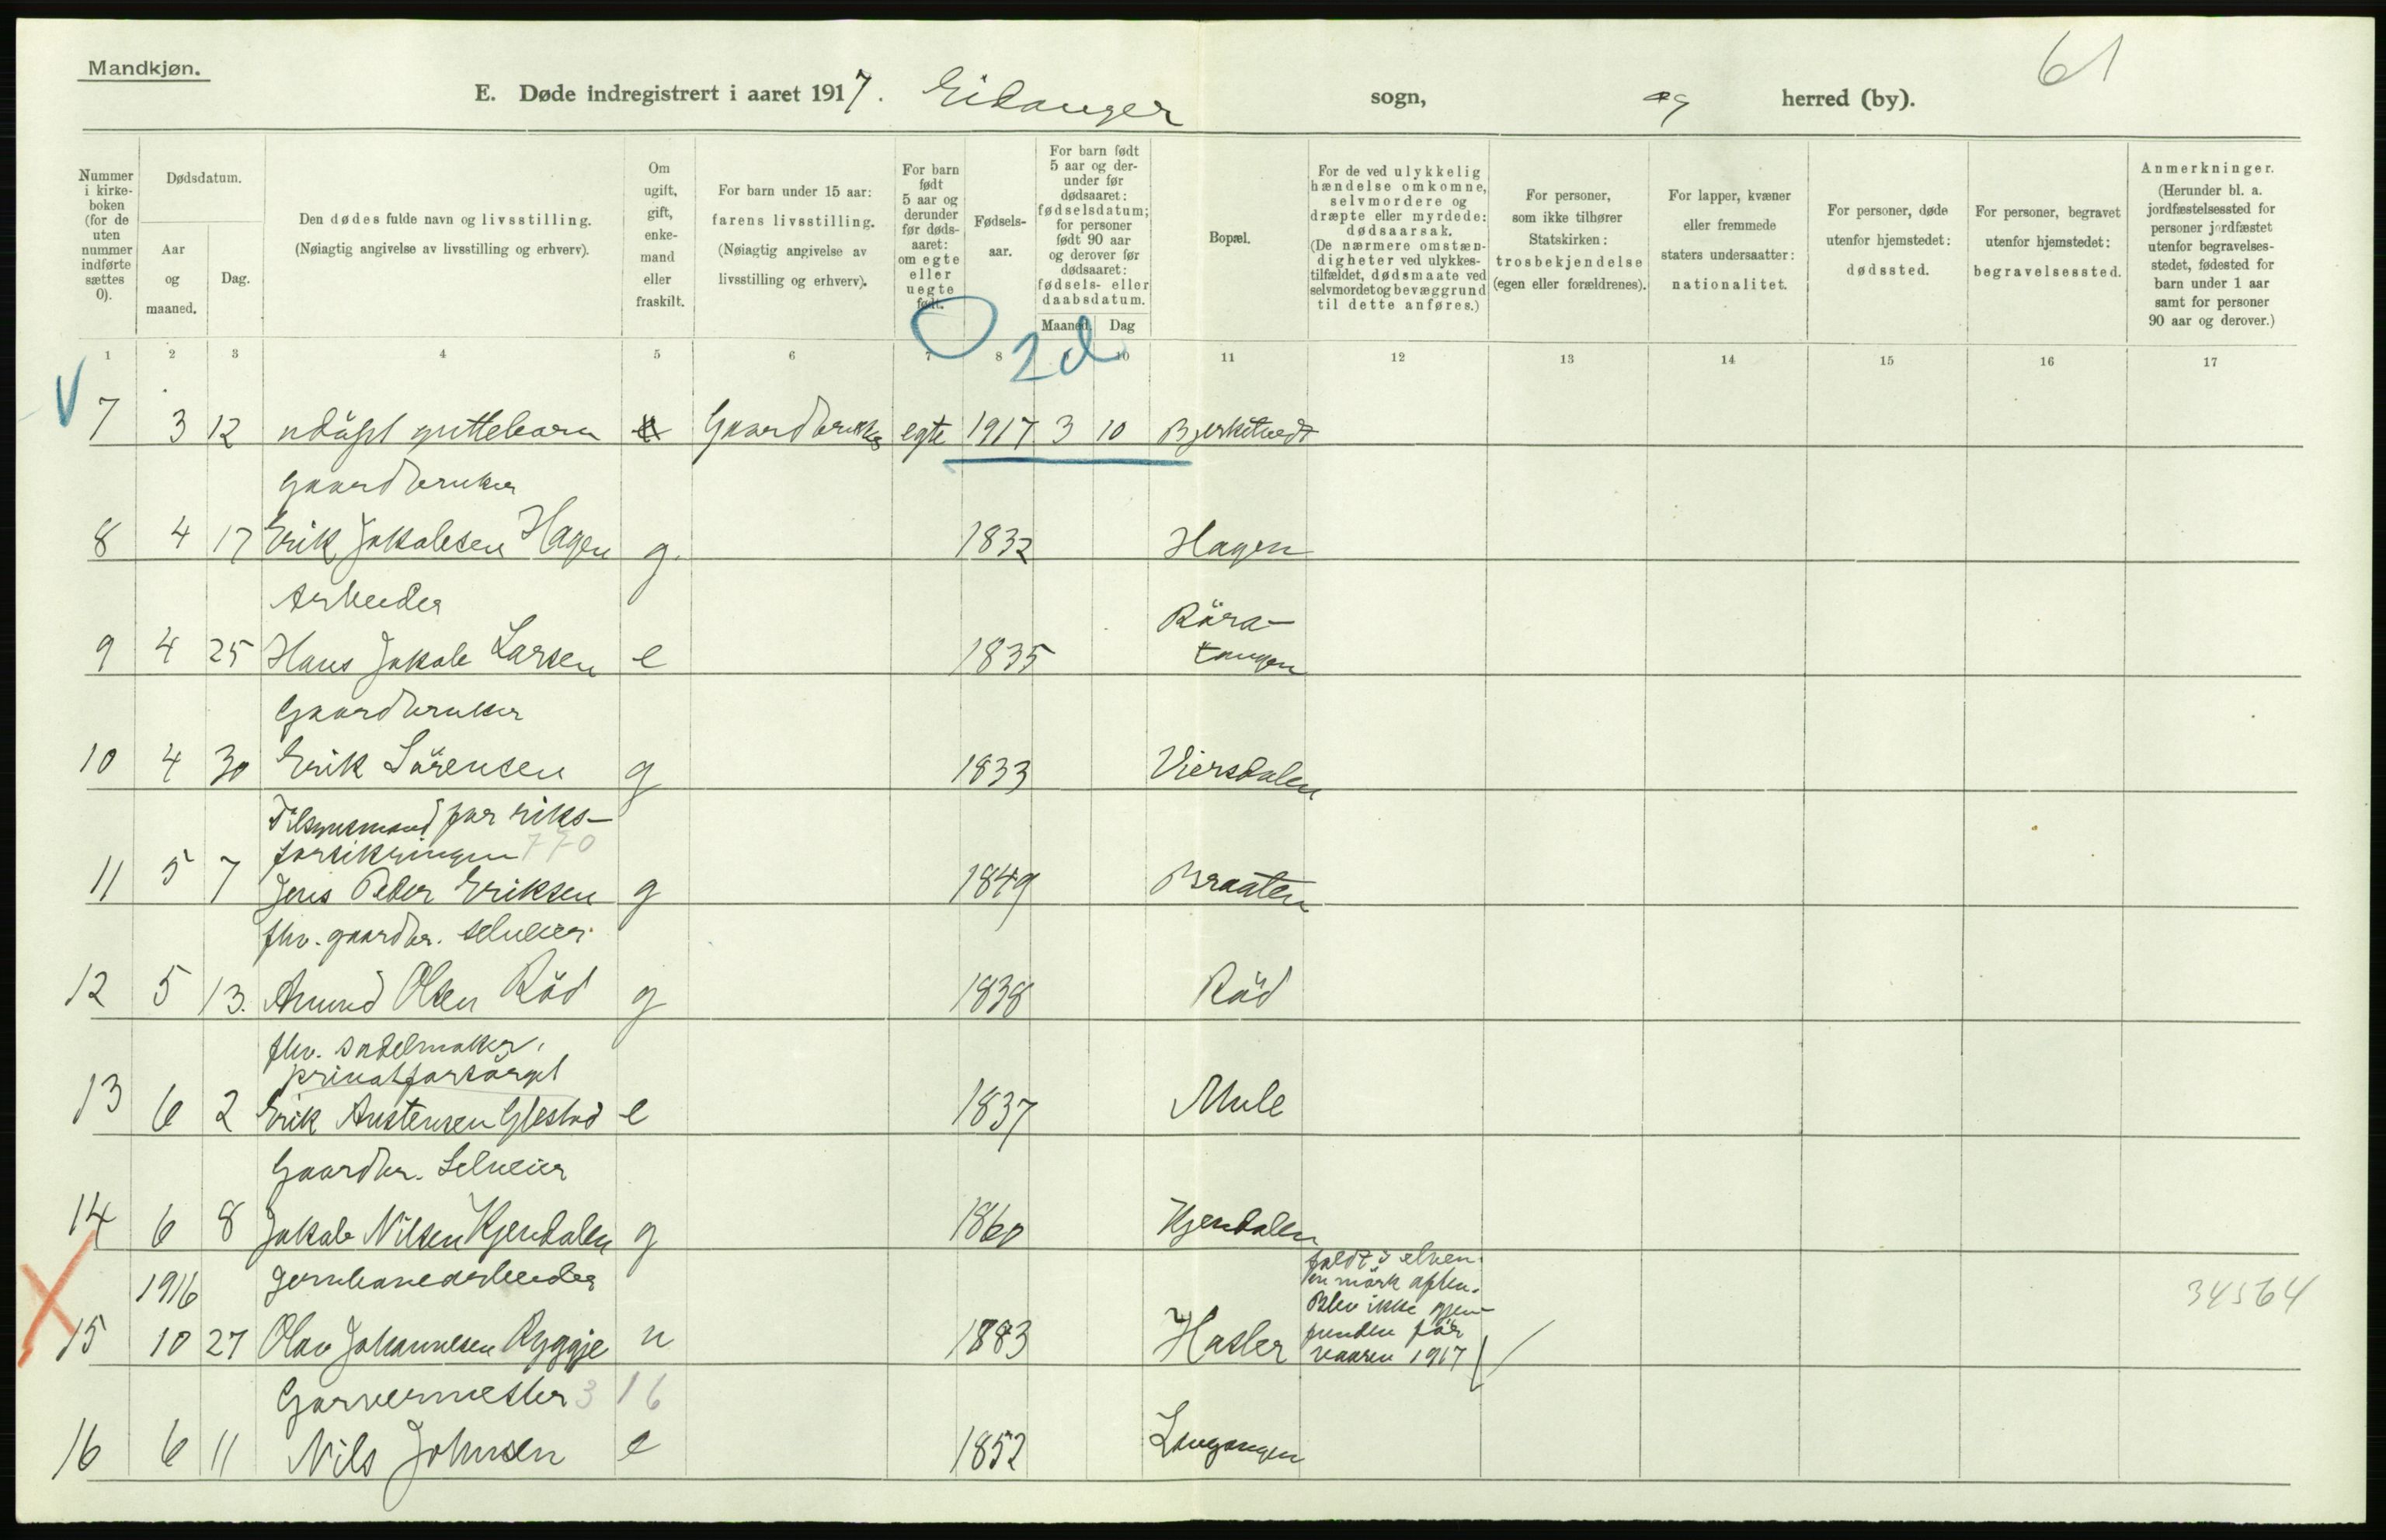 Mandkjøn.
61
E. Døde indregistrert i aaret 1917. Eidanger sogn, og herred (by).
Nummer i kirke-boken (for de uten nummer indførte sættes 0).
Dødsdatum.
Aar og maaned.
Dag.
Den dødes fulde navn og livsstilling.
(Nøiagtig angivelse av livsstilling og erhverv).
Om ugift, gift, enke-mand eller fraskilt.
For barn under 15 aar: farens livsstilling.
(Nøiagtig angivelse av livsstilling og erhverv).
For barn født 5 aar og derunder før døds-aaret: om egte eller uegte født.
Fødsels-aar.
For barn født 5 aar og der-under før dødsaaret: fødselsdatum; for personer født 90 aar og derover før dødsaaret: fødsels- eller daabsdatum.
Maaned. Dag
Bopæl.
For de ved ulykkelig hændelse omkomne, selvmordere og dræpte eller myrdede: dødsaarsak.
(De nærmere omstæn-digheter ved ulykkes-tilfældet, dødsmaate ved selvmordet og bevæggrund til dette anføres.)
For personer, som ikke tilhører Statskirken: trosbekjendelse (egen eller forældrenes).
For lapper, kvæner eller fremmede staters undersaatter: nationalitet.
For personer, døde utenfor hjemstedet: dødssted.
For personer, begravet utenfor hjemstedet: begravelsessted.
Anmerkninger.
(Herunder bl. a. jordfæstelsessted for personer jordfæstet utenfor begravelses-stedet, fødested for barn under 1 aar samt for personer 90 aar og derover.)
1 2 3 4 5 6 7 8 9 10 11 12 13 14 15 16 17
2d
7 3 12 udöpt guttebarn Gaardbruker egte 1917 3 10 Bjerketvedt
Gaardbruker
8 4 17 Erik Jakobsen Hagen g. 1832 Hagen
Arbeider
9 4 25 Hans Jakob Larsen e 1835 Röra-tangen
Gaardbruker
10 4 30 Erik Sörensen g 1833 Viersdalen
Tilsynsmand for riks-
forsikringen 770
11 5 7 Jens Peder Eriksen g 1849 Braaten
fhv. gaardbr. selveier.
12 5 13. Amund Olsen Röd g 1838 Röd
fhv. sadelmaker,
privatforsörget
13 6 2 Erik Austensen e 1837 Mule
Gaardbr. Selveier
14 6 8 Jakob Nilsen Kjendalen g 1860 Kjendalen
1916 Jernbanearbeider
faldt i elven
en mörk aften.
Blev ikke gjen-
funden för
vaaren 1917
34564
15 10 27 Olav Johannesen Rygge u 1883 Hasler
Garvermester 316
16 6 11 Nils Johnsen e 1852 Langangen